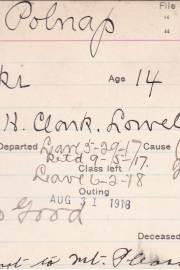 File
Polnap
"
"
ki Age 14
H. Clark, Lowel
Departed Leave 5-29-17 Cause
Retd 9-15-17.
Class left
Leave 6-2-18
Outing
AUG 31 1918
Good
Deceased
not to Mt. Pleas